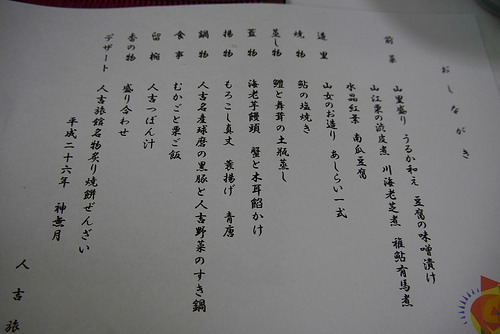 おしながき
前菜 山里盛り うるか和え 豆腐の味噌漬け
山江栗の渋皮煮 川海老芝煮 稚鮎有馬煮
水晶紅葉 南瓜豆腐
造里 山女のお造り あしらい一式
焼物 鮎の塩焼き
蒸し物 鱧と舞茸の土瓶蒸し
蓋物 海老芋饅頭 蟹と木耳餡かけ
揚物 もろこし真丈 蓑揚げ 青唐
鍋物 人吉名産球磨の黒豚と人吉野菜のすき鍋
食事 むかごと栗ご飯
留椀 人吉つぼん汁
香の物 盛り合わせ
デザート 人吉旅館名物炙り焼餅ぜんざい
平成二十六年 神無月
人吉旅